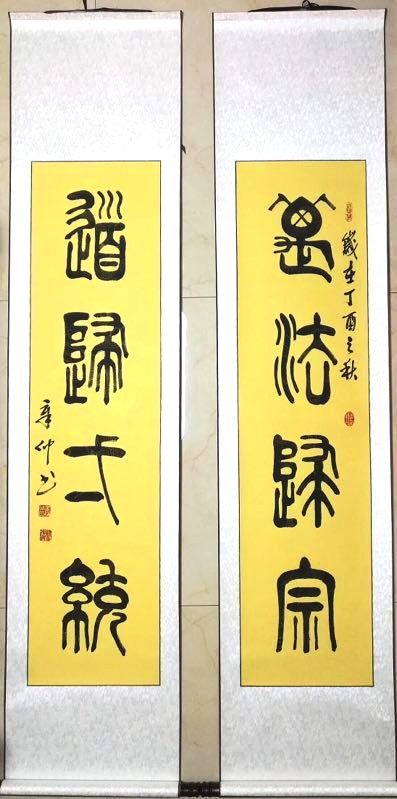 萬法歸宗
歲在丁酉之秋
道歸弌統
辛仲书